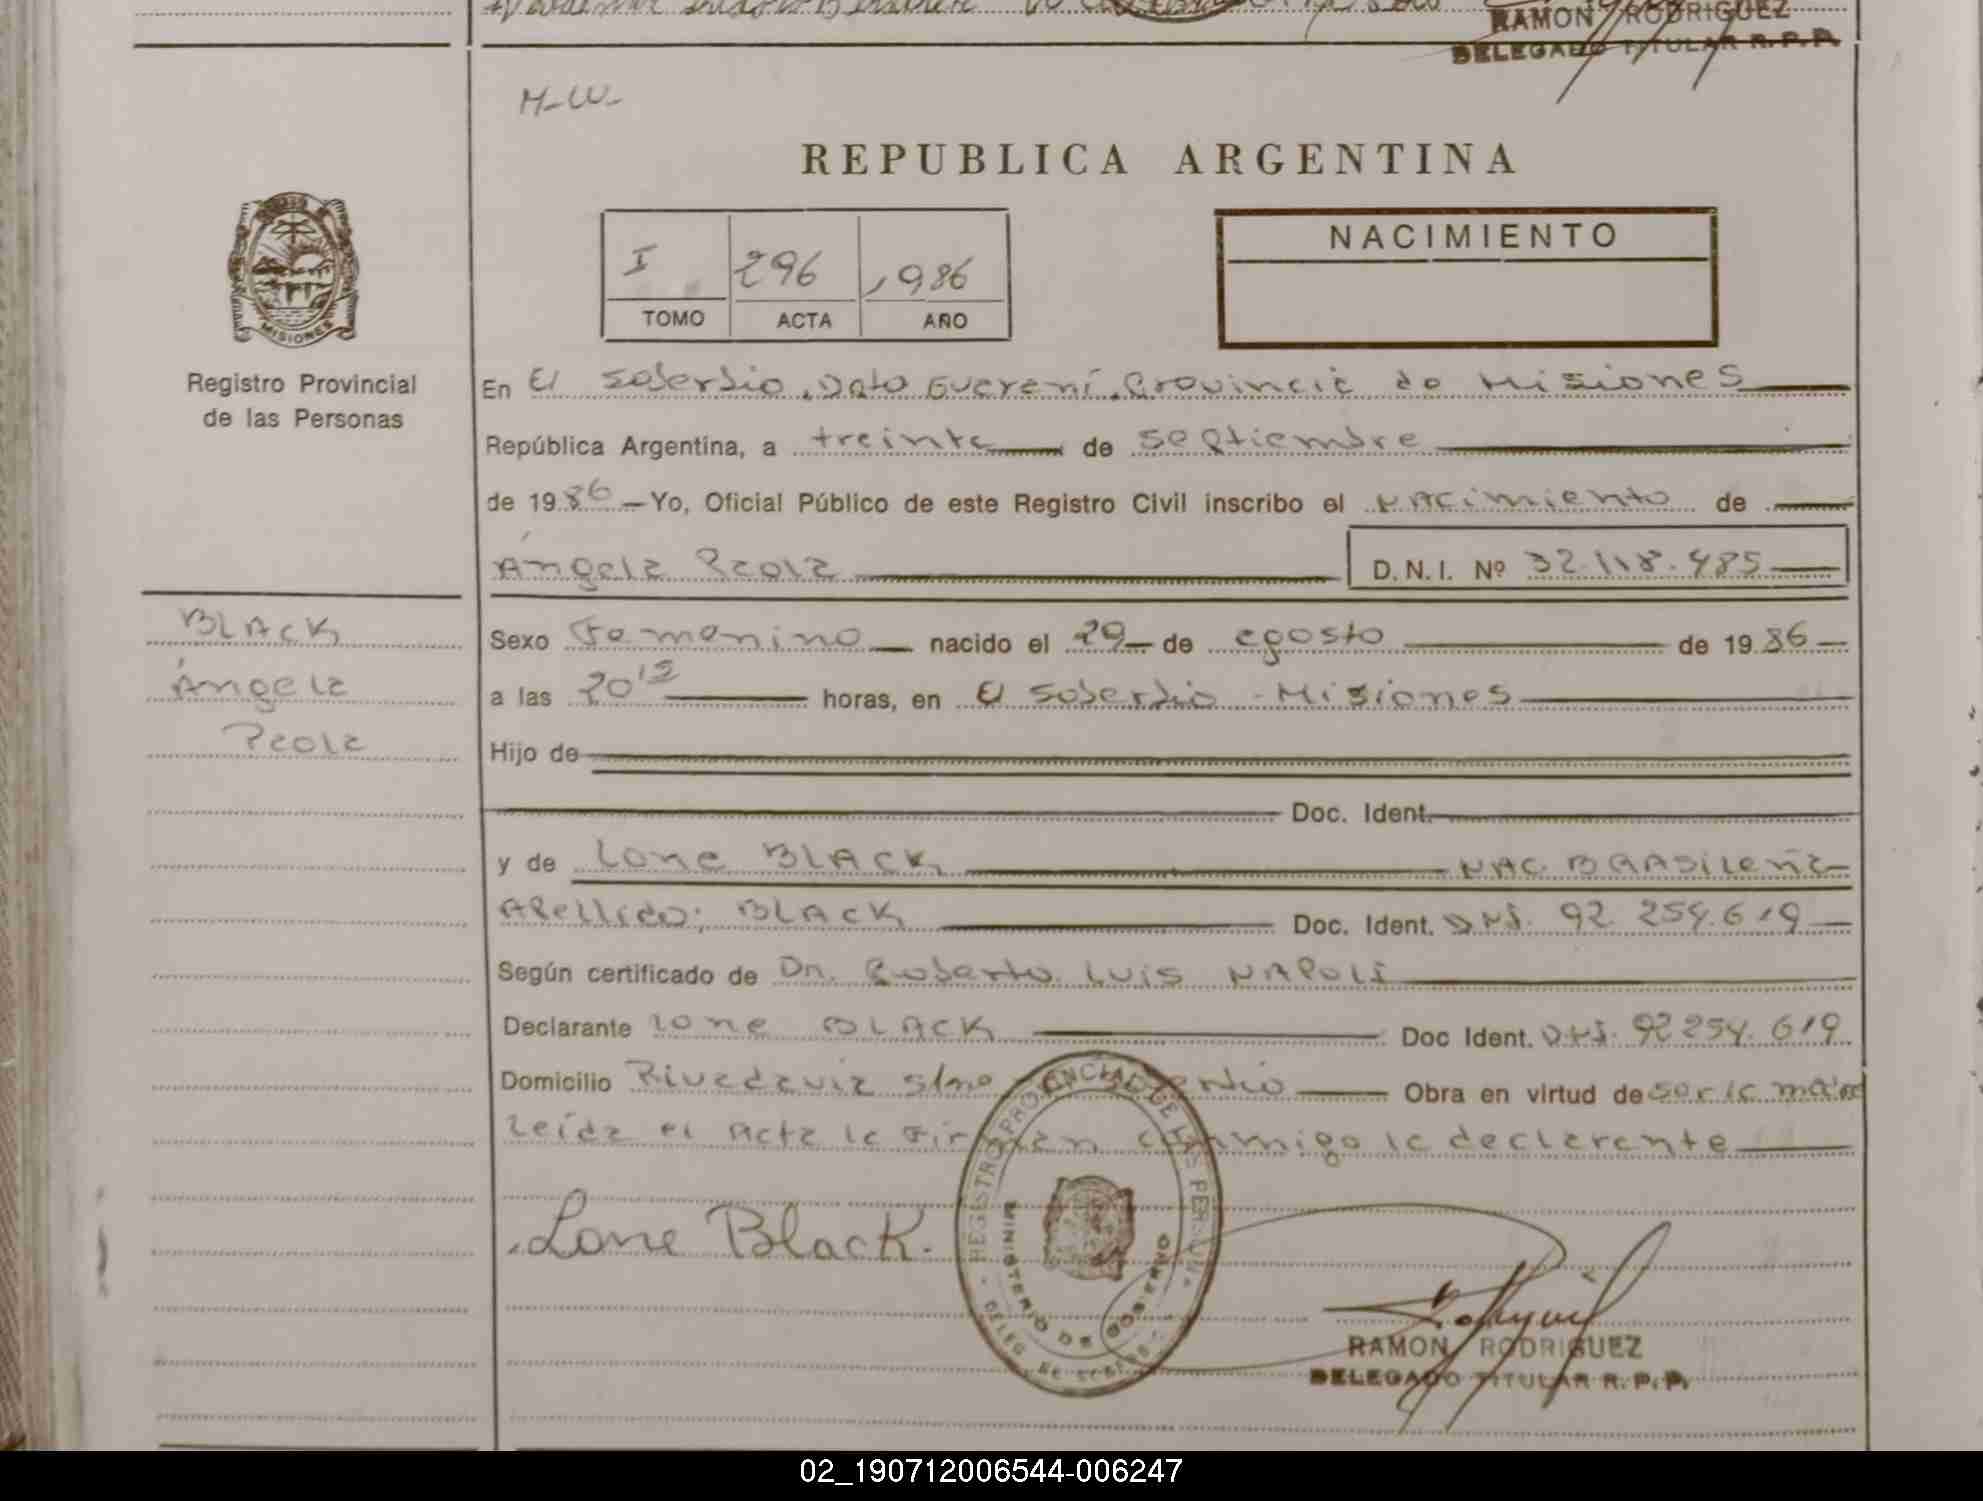 RAMON RODRIGUEZ
DELEGADO TITULAR R.P.P.
M-W-
REPUBLICA ARGENTINA
I 296 1986
TOMO ACTA AÑO
NACIMIENTO
MISIONES
Registro Provincial
de las Personas
En El Soberbio, Dpto Guaraní, Provincia de Misiones
República Argentina, a treinta de septiembre
de 1986 - Yo, Oficial Público de este Registro Civil inscribo el nacimiento de
Ángela Paola D.N.I. Nº 32.118.485
BLACK
Ángela
Paola
Sexo Femenino nacido el 29 de agosto de 1986
a las 20 15 horas, en El Soberbio - Misiones
Hijo de
Doc. Ident.
y de Lone BLACK NAC. BRASileña
Apellido: BLACK Doc. Ident. DNI. 92.254.619
Según certificado de Dr. Roberto Luis NAPOLI
Declarante Lone BLACK Doc Ident. DNI. 92254.619
Domicilio Rivadavia s/no Obra en virtud de ser la madre
Leída el Acta la firman conmigo la declarante
Lone Black.
REGISTRO PROVINCIAL DE LAS PERSONAS
MINISTERIO DE GOBIERNO
RAMON RODRIGUEZ
DELEGADO TITULAR R.P.P.
02_190712006544-006247